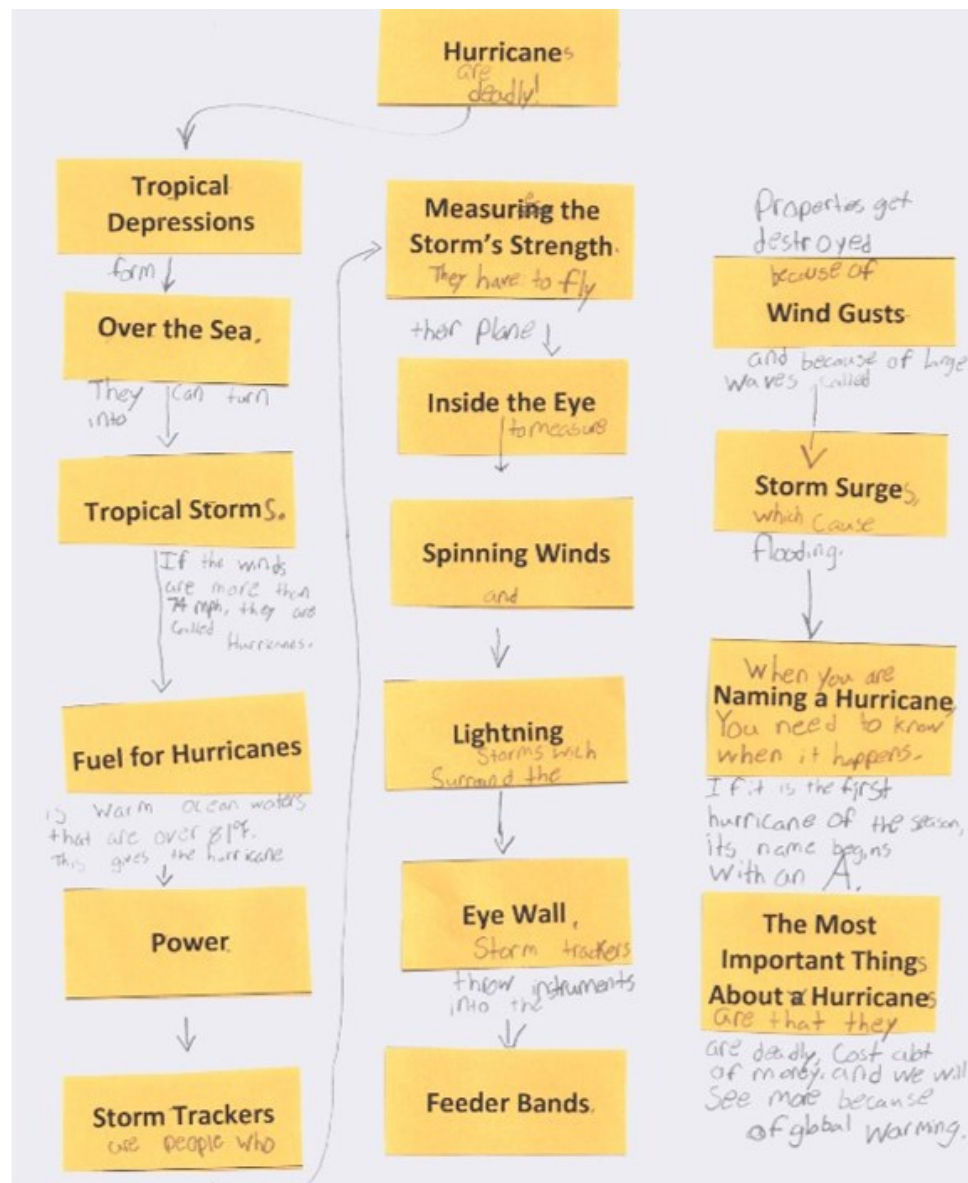 Hurricanes
are
deadly!
Tropical
Depressions
form
Over the Sea.
They can turn
into
Tropical Storms.
If the winds
are more than
74 mph, they are
called
Hurricanes.
Fuel for Hurricanes
is warm ocean waters
that are over 81°F.
This gives the hurricane
Power.
Storm Trackers
are people who
Measuring the
Storm's Strength.
They have to fly
their plane
Inside the Eye
to measure
Spinning Winds
and
Lightning
Storms wich
Surround the
Eye Wall.
Storm trackers
throw instruments
into the
Feeder Bands.
Properties get
destroyed
because of
Wind Gusts
and because of large
waves called
Storm Surges,
which cause
flooding.
When you are
Naming a Hurricane,
You need to know
when it happens.
If it is the first
hurricane of the season,
its name begins
with an A.
The Most
Important Things
About a Hurricanes
are that they
are deadly, Cost alot
of money, and we will
See more because
of global warming.